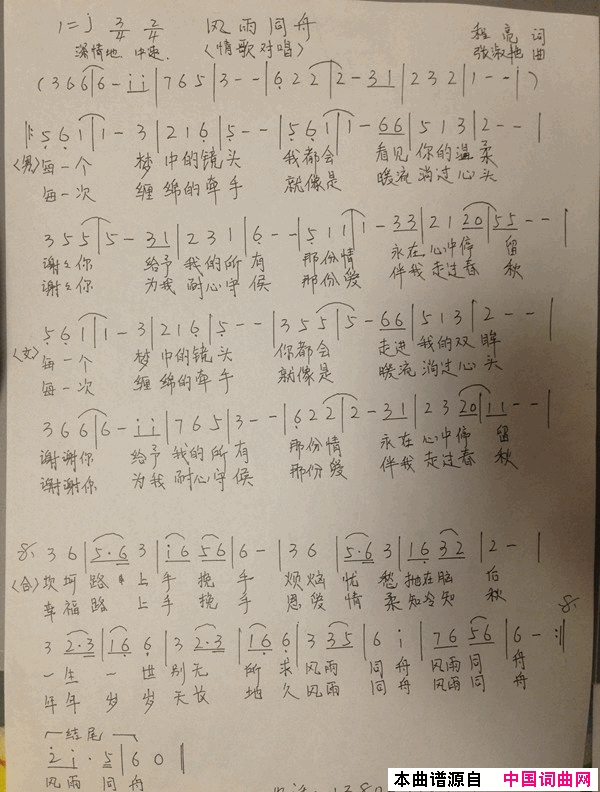 1=J 3/4 2/4 风雨同舟 程亮 词
深情地 中速 〈情歌对唱〉 张淑艳 曲
(3 6 6|6 - i i|7 6 5|3 - -|6 2 2|2 - 3 1|2 3 2|1 - -|)
5 6 1|1 - 3|2 1 6|5 - -|5 6 1|1 - 6 6|5 1 3|2 - -|
〈男〉每一个 梦中的镜头 我都会 看见你的温柔
每一次 缠绵的牵手 就像是 暖流淌过心头
3 5 5|5 - 3 1|2 3 1|6 - -|5 1 1|1 - 3 3|2 1 2 0|5 5 - -|
谢々你 给予我的所有 那份情 永在心中停留
谢々你 为我耐心守候 那份爱 伴我走过春秋
5 6 1|1 - 3|2 1 6|5 - -|3 5 5|5 - 6 6|5 1 3|2 - -|
〈女〉每一个 梦中的镜头 你都会 走进我的双眸
每一次 缠绵的牵手 就像是 暖流淌过心头
3 6 6|6 - i i|7 6 5|3 - -|6 2 2|2 - 3 1|2 3 2 0|1 1 - -|
谢谢你 给予我的所有 那份情 永在心中停留
谢谢你 为我耐心守候 那份爱 伴我走过春秋
3 6|5·6 3|i 6 5 6|6 -|3 6|5·6 3|1 6 3 2|2 -|
〈合〉坎坷路上手挽手 烦恼忧愁抛在脑后
幸福路上手挽手 恩爱情柔知冷知秋
3 2·3|1 6 6|3 2·3|1 6 6|3 3 5|6 i|7 6 5 6|6 - :‖
一生一世别无所求风雨同舟风雨同舟
年年岁岁天长地久风雨同舟风雨同舟
结尾
2 i·5|6 0‖
风雨同舟
本曲谱源自 中国词曲网